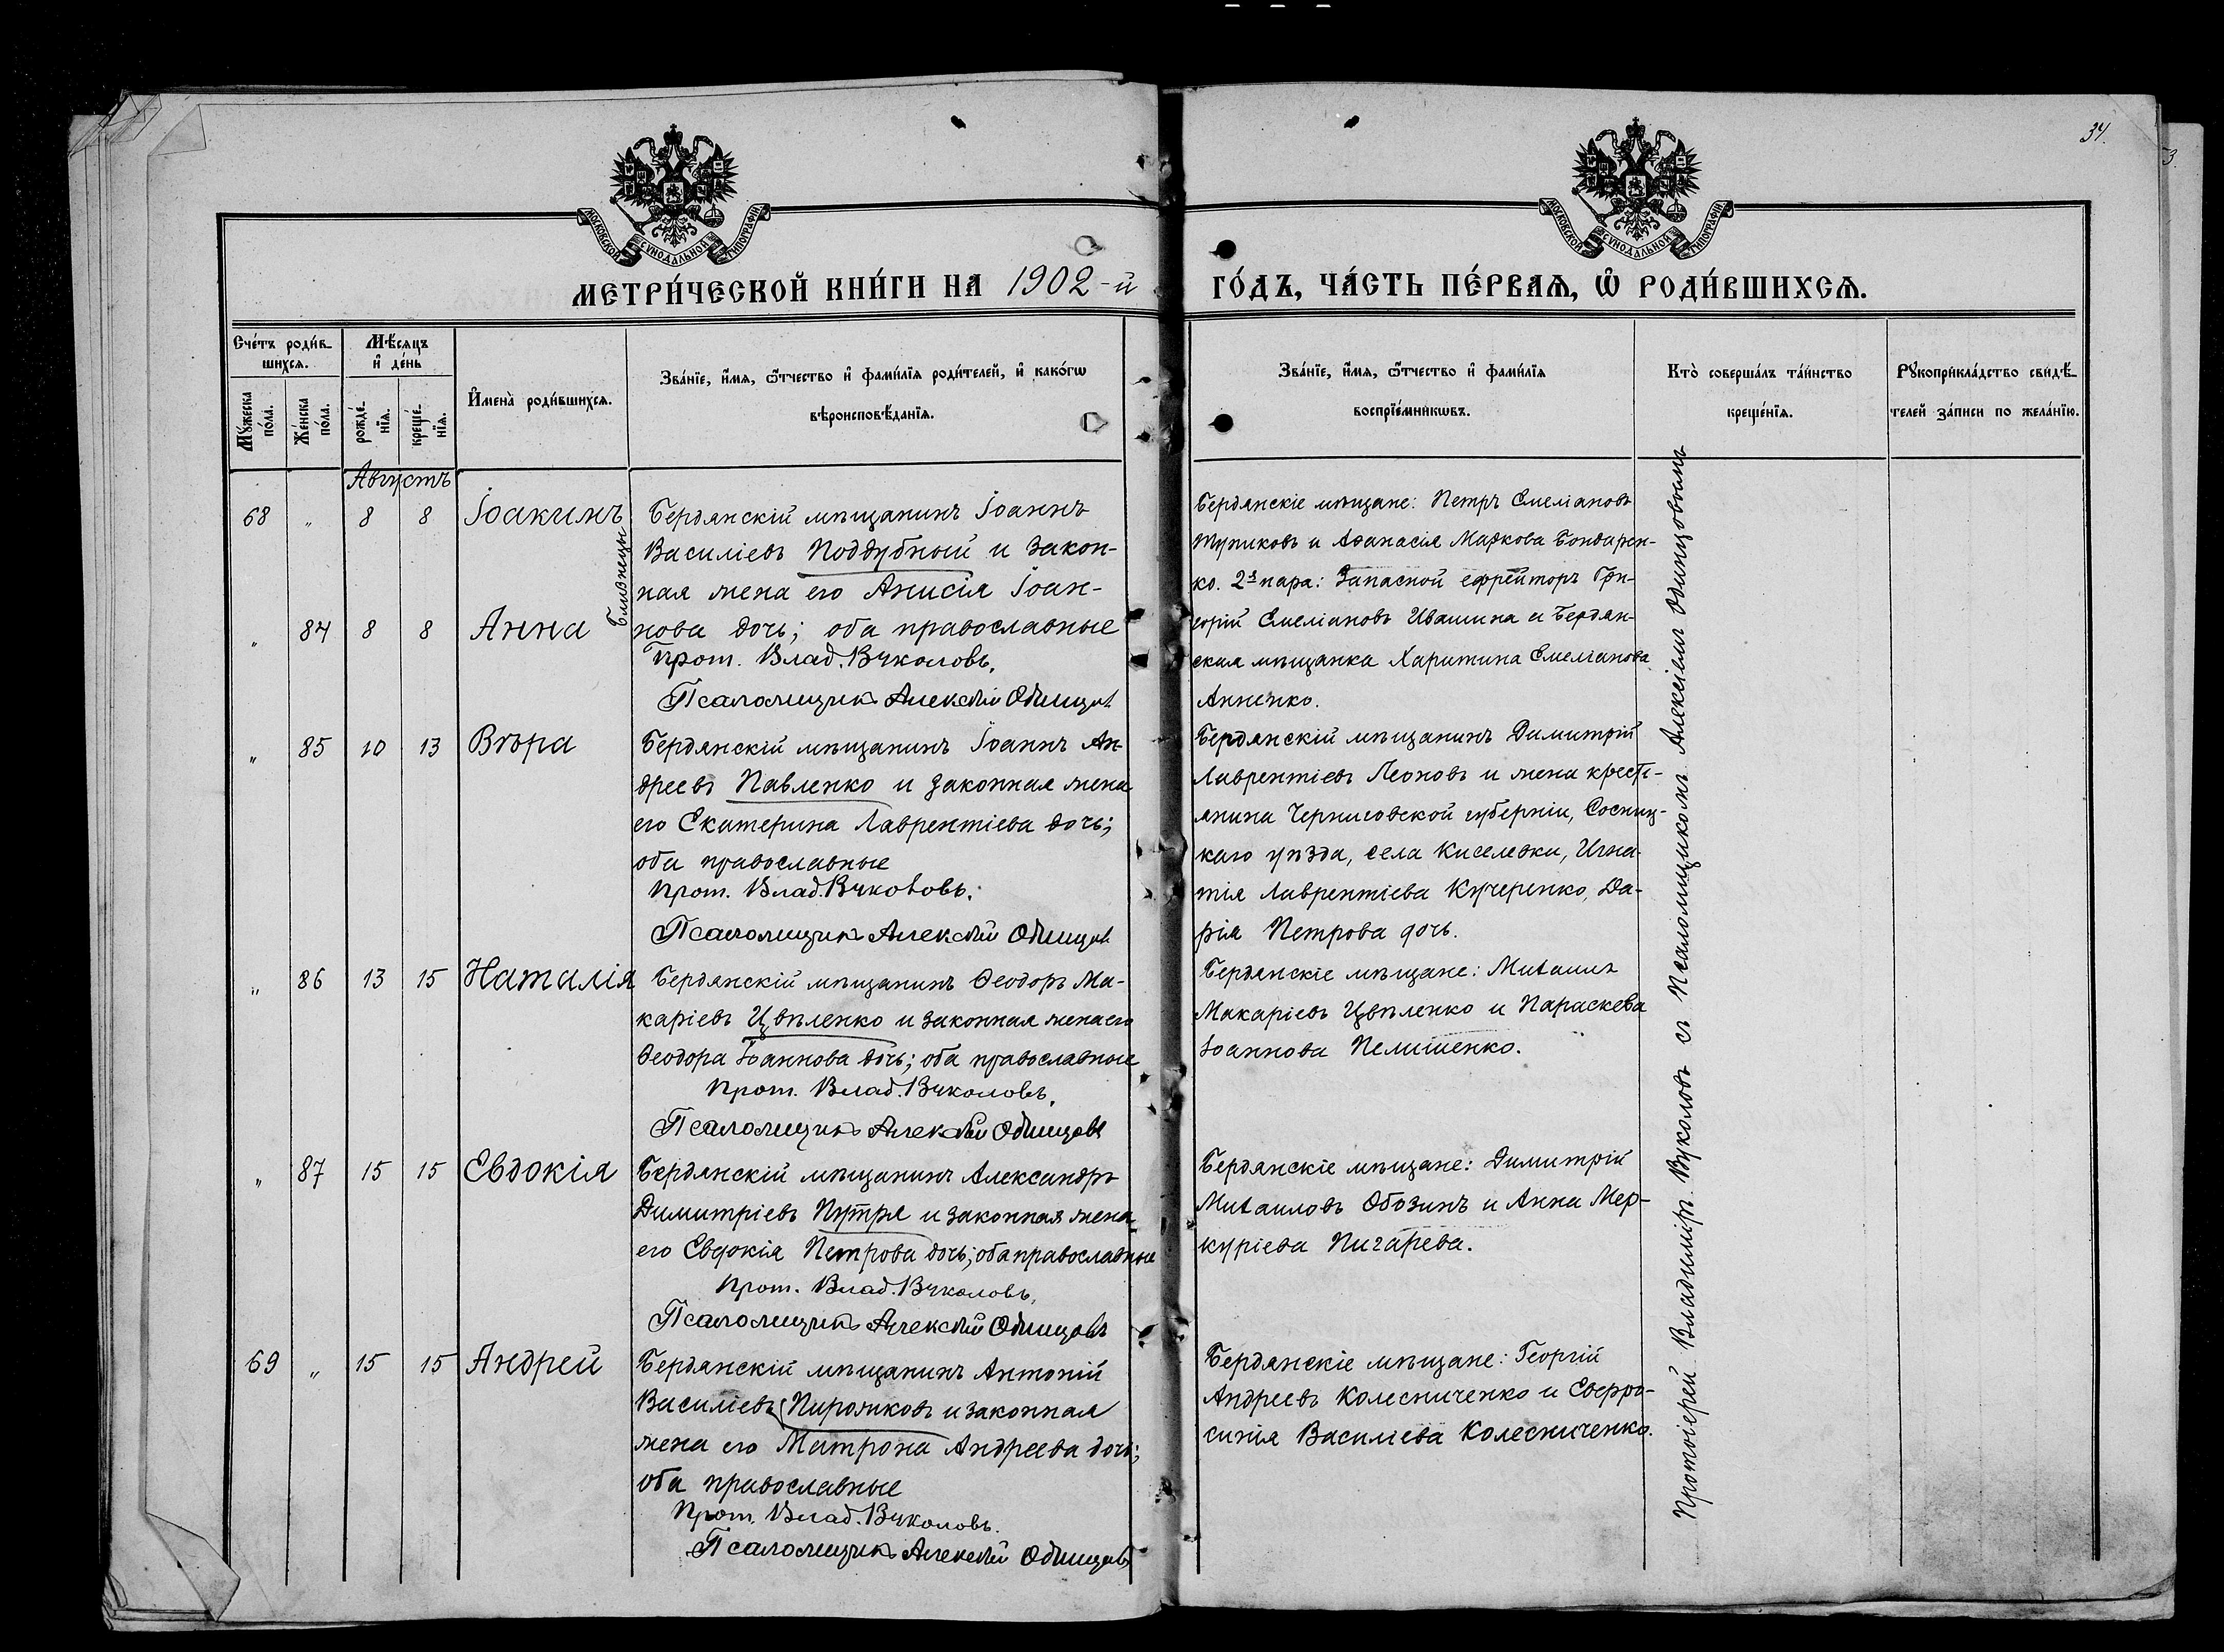 34.
3.
МОСКОВСКОЙ СѴНОДАЛЬНОЙ ТИПОГРАФІИ
МОСКОВСКОЙ СѴНОДАЛЬНОЙ ТИПОГРАФІИ
МЕТРИ́ЧЕСКОЙ КНИ́ГИ НА 1902-й
ГО́ДЪ, ЧА́СТЬ ПЕ́РВАѦ, Ѡ҆ РОДИ́ВШИХСѦ.
Сче́тъ роди́в-
шихсѧ.
Мꙋ́жеска
по́ла.
Же́нска
по́ла.
Мѣ́сѧцъ
и҆ де́нь
рожде́-
нїѧ.
креще́-
нїѧ.
И҆мена̀ роди́вшихсѧ.
Зва́нїе, и҆́мѧ, ѻ҆́тчество и҆ фами́лїѧ роди́телей, и҆ како́гѡ
вѣроисповѣ́данїѧ.
Зва́нїе, и҆́мѧ, ѻ҆́тчество и҆ фами́лїѧ
воспрїе́мникѡвъ.
Кто̀ соверша́лъ та́инство
креще́нїѧ.
Рꙋкоприкла́дство свидѣ́-
телей за́писи по жела́нїю.
Августъ
68 " 8 8 Іоакимъ
Близнецы
" 84 8 8 Анна
Бердянскій мѣщанинъ Іоаннъ
Василіевъ Поддубный и закон-
ная жена его Анисія Іоан-
нова дочь; оба православные
Прот. Влад. Вуколовъ.
Псаломщикъ Алексѣй Одинцовъ
Бердянскіе мѣщане: Петръ Емеліановъ
Тупиковъ и Аѳанасія Маркова Бондарен-
ко. 2я пара: Запасной ефрейторъ Гри-
горій Емеліановъ Ивашина и Бердян-
ская мѣщанка Харитина Емеліанова
Анненко.
" 85 10 13 Вѣра
Бердянскій мѣщанинъ Іоаннъ Ан-
дреевъ Павленко и законная жена
его Екатерина Лаврентіева дочь;
оба православные
Прот. Влад. Вуколовъ.
Псаломщикъ Алексѣй Одинцовъ
Бердянскій мѣщанинъ Димитрій
Лаврентіевъ Леоновъ и жена кресть-
янина Черниговской губерніи, Сосниц-
каго уѣзда, села Киселевки, Игна-
тія Лаврентіева Кучеренко, Да-
рія Петрова дочь.
" 86 13 15 Наталія
Бердянскій мѣщанинъ Ѳеодоръ Ма-
каріевъ Цвѣленко и законная жена его
Ѳеодора Іоаннова дочь; оба православные
Прот. Влад. Вуколовъ.
Псаломщикъ Алексѣй Одинцовъ
Бердянскіе мѣщане: Михаилъ
Макаріевъ Цвѣленко и Параскева
Іоаннова Пелишенко.
" 87 15 15 Евдокія
Бердянскій мѣщанинъ Александръ
Димитріевъ Путря и законная жена
его Евдокія Петрова дочь; оба православные
Прот. Влад. Вуколовъ.
Псаломщикъ Алексѣй Одинцовъ
Бердянскіе мѣщане: Димитрій
Михаиловъ Обозинъ и Анна Мер-
куріева Пигарева.
69 " 15 15 Андрей
Бердянскій мѣщанинъ Антоній
Василіевъ Пирожковъ и законная
жена его Матрона Андреева дочь;
оба православные
Прот. Влад. Вуколовъ.
Псаломщикъ Алексѣй Одинцовъ
Бердянскіе мѣщане: Георгій
Андреевъ Колесниченко и Евфро-
синія Василіева Колесниченко.
Протоіерей Владиміръ Вуколовъ съ Псаломщикомъ Алексіемъ Одинцовымъ